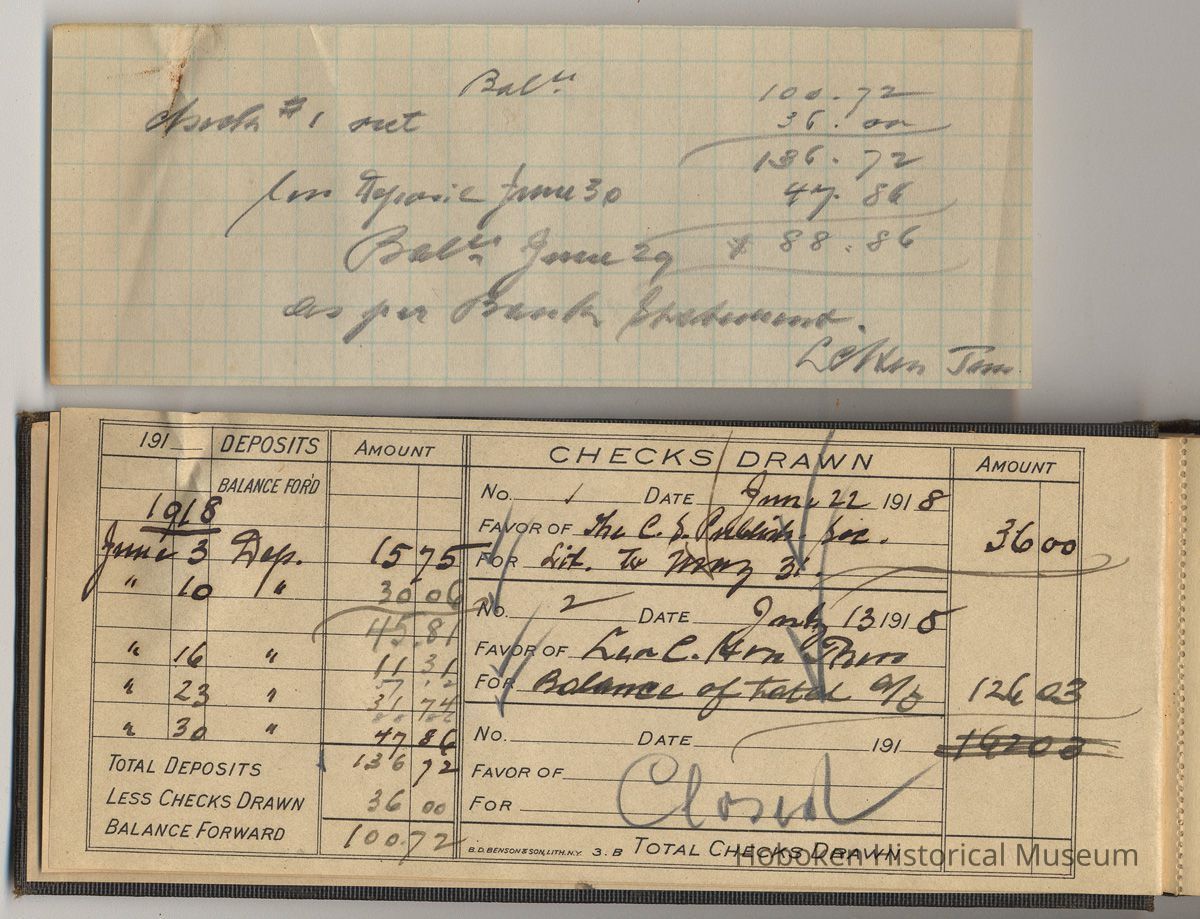 Bal.
100.72
Check #1 out 36.00
136.72
less Deposit June 30 47.86
Bal. June 29 $ 88.86
as per Bank Statement.
191
DEPOSITS AMOUNT
BALANCE FOR'D
1918
June 3 Dep. 15 75
" 10 " 30 06
45.81
" 16 " 11 31
" 23 " 31 74
" 30 " 47 86
TOTAL DEPOSITS 136 72
LESS CHECKS DRAWN 36 00
BALANCE FORWARD 100.72
CHECKS DRAWN AMOUNT
No. 1 DATE June 22 1918
FAVOR OF The C. S. Publish. Soc. 36 00
FOR Lit. To May 31.
No. 2 DATE July 13 1918
FAVOR OF Leo C.
FOR Balance of total a/c 126 03
No. DATE 191
FAVOR OF
FOR Closed
B.D. BENSON & SON, LITH. N.Y. 3.B TOTAL CHECKS DRAWN
Hoboken Historical Museum